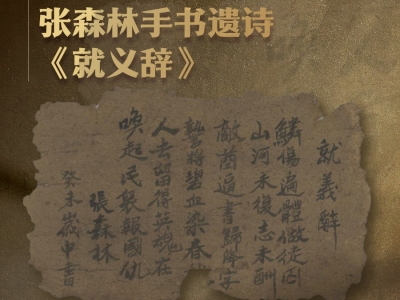 张森林手书遗诗
《就义辞》
就義辭
鱗傷遍體做徒囚
山河未復志未酬
敵酋逼書歸降字
誓將碧血染春
人去留得英魂在
喚起民衆報國仇
張森林
癸未歲書